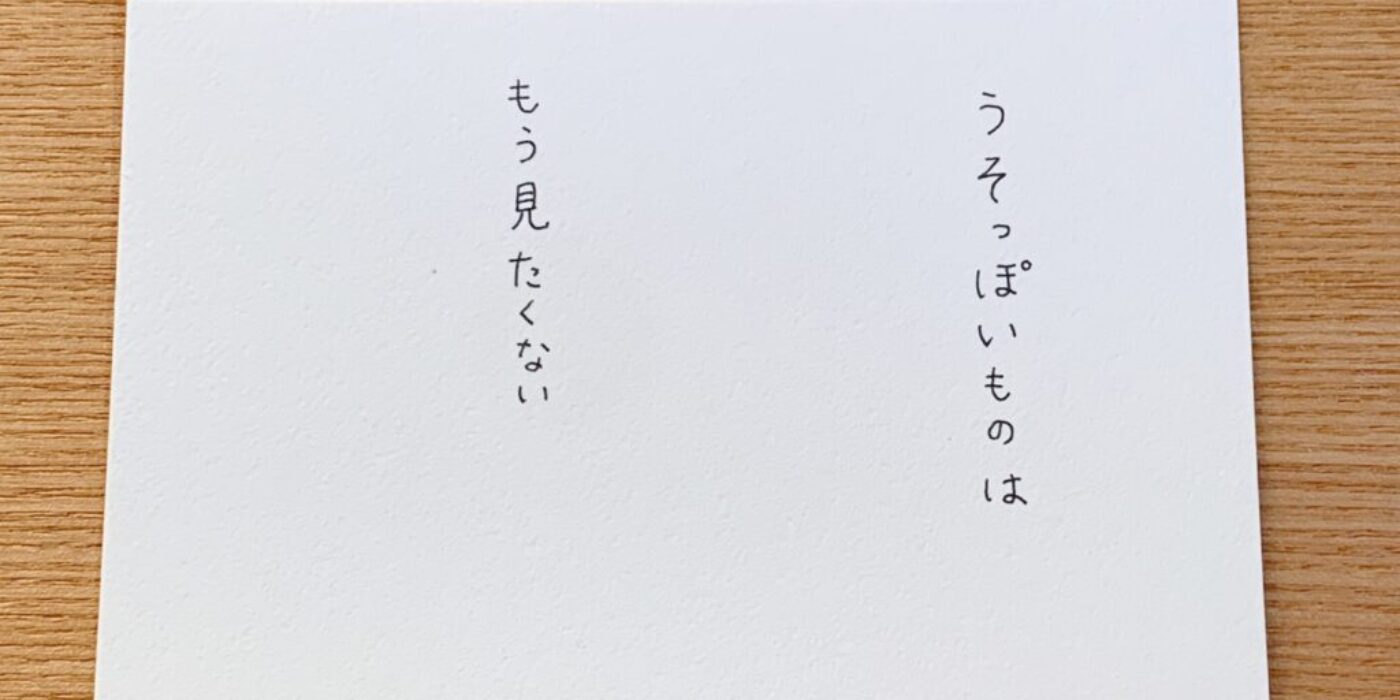 うそっぽいものは
もう見たくない